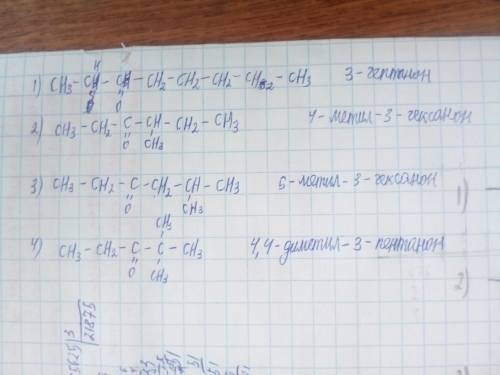 1) CH3 – CH – CH – CH2 – CH2 – CH2 – CH2 – CH3 3-гептанон
O
2) CH3 – CH2 – C – CH – CH2 – CH3 4-метил-3-гексанон
O CH3
3) CH3 – CH2 – C – CH2 – CH – CH3 5-метил-3-гексанон
O CH3
CH3
4) CH3 – CH2 – C – C – CH3 4,4-диметил-3-пентанон
O CH3
1)
2)
3
21875